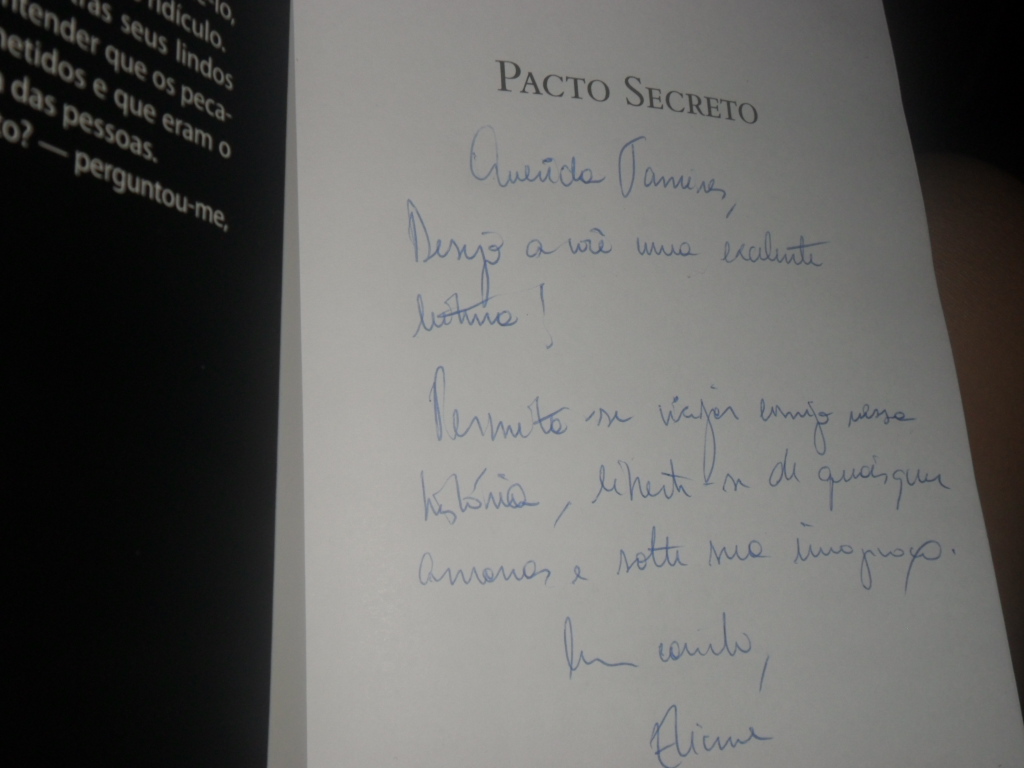 -lo,
ridículo.
seus lindos
ntender que os peca-
metidos e que eram o
das pessoas.
to? — perguntou-me,
PACTO SECRETO
Querida Tamires,
Desejo a você uma excelente
leitura!
Permita-se viajar comigo nessa
história, liberte-se de quaisquer
amarras e solte sua imaginação.
Com carinho,
Eliane